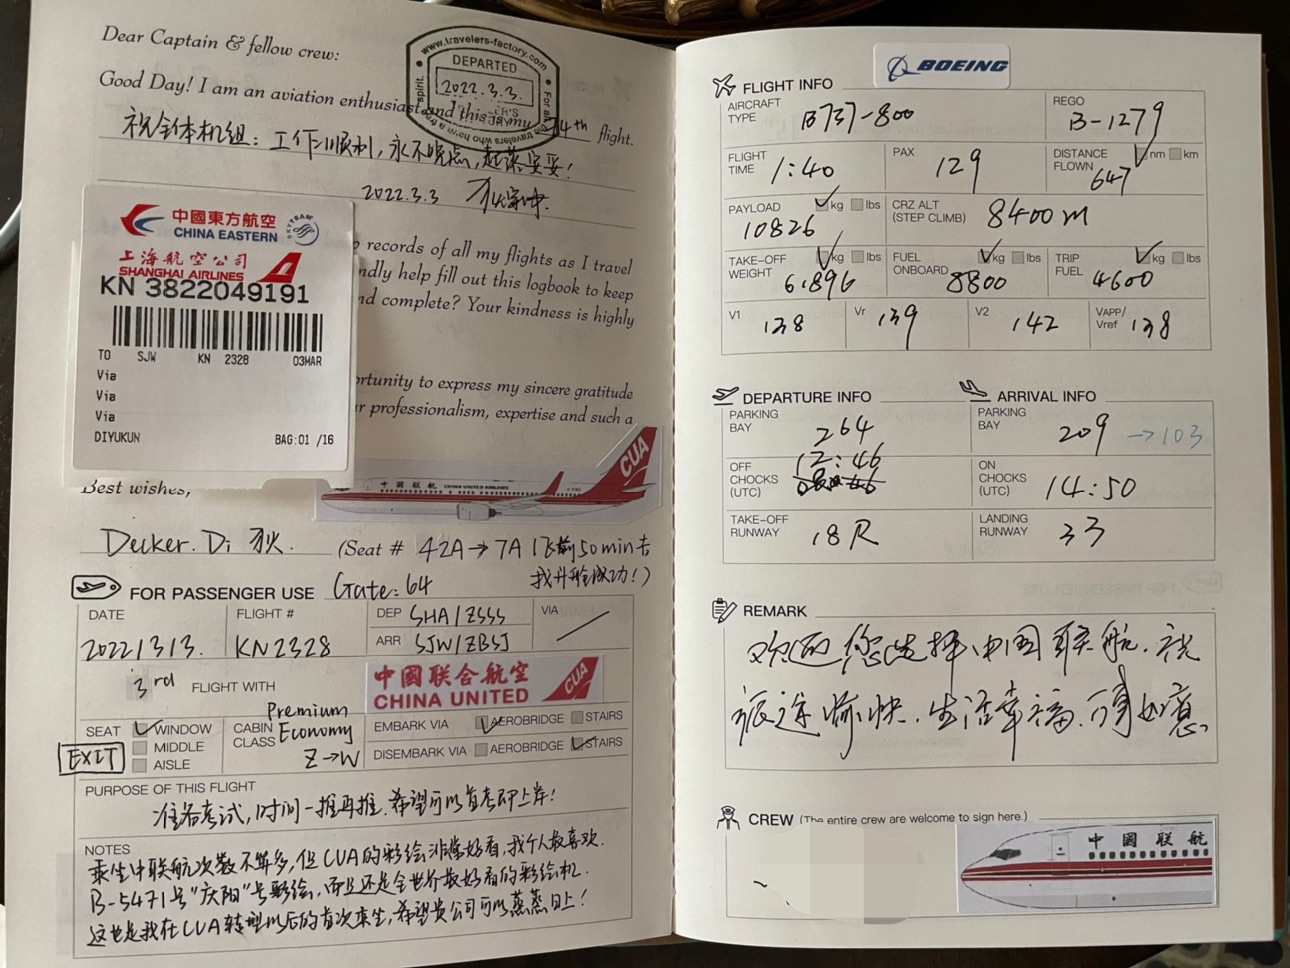 Dear Captain & fellow crew:
Good Day! I am an aviation enthusiast and this is my 74th flight.
祝全体机组：工作顺利，永不晚点，起落安妥！
2022.3.3
www.travelers-factory.com
DEPARTED
2022.3.3.
For all the travelers who have a free spirit.
中國東方航空
CHINA EASTERN
SKYTEAM
上海航空公司
SHANGHAI AIRLINES
KN 3822049191
TO SJW KN 2328 03MAR
Via
Via
Via
DIYUKUN BAG:01 /16
records of all my flights as I travel
ndly help fill out this logbook to keep
nd complete? Your kindness is highly
ortunity to express my sincere gratitude
r professionalism, expertise and such a
Best wishes,
中國聯航 CHINA UNITED AIRLINES
CUA
Decker. Di 狄. (Seat # 42A→7A (飞前50min去
找升舱成功！)
FOR PASSENGER USE Gate: 64
DATE 2022/3/3.
FLIGHT # KN2328
DEP SHA/ZSSS
ARR SJW/ZBSJ
VIA /
3rd FLIGHT WITH 中國联合航空 CHINA UNITED CUA
SEAT WINDOW
MIDDLE
AISLE
EXIT
CABIN CLASS Premium Economy
Z→W
EMBARK VIA AEROBRIDGE STAIRS
DISEMBARK VIA AEROBRIDGE STAIRS
PURPOSE OF THIS FLIGHT
准备考试，时间一推再推，希望可以首考即上岸！
NOTES
乘坐中联航次数不算多，但CUA的彩绘非常好看，我个人最喜欢
B-5471号"庆阳"号彩绘，而且还是全世界最好看的彩绘机.
这也是我在CUA转型以后的首次乘坐，希望贵公司可以蒸蒸日上！
BOEING
FLIGHT INFO
AIRCRAFT TYPE B737-800
REGO B-1279
FLIGHT TIME 1:40
PAX 129
DISTANCE FLOWN 647 nm km
PAYLOAD 10826 kg lbs
CRZ ALT (STEP CLIMB) 8400m
TAKE-OFF WEIGHT 61896 kg lbs
FUEL ONBOARD 8800 kg lbs
TRIP FUEL 4600 kg lbs
V1 138
Vr 139
V2 142
VAPP/Vref 138
DEPARTURE INFO
PARKING BAY 264
OFF CHOCKS (UTC) 12:46
TAKE-OFF RUNWAY 18R
ARRIVAL INFO
PARKING BAY 209 →103
ON CHOCKS (UTC) 14:50
LANDING RUNWAY 33
REMARK
欢迎您选择中国联航.祝
旅途愉快.生活幸福.万事如意.
CREW (The entire crew are welcome to sign here.)
中國联航